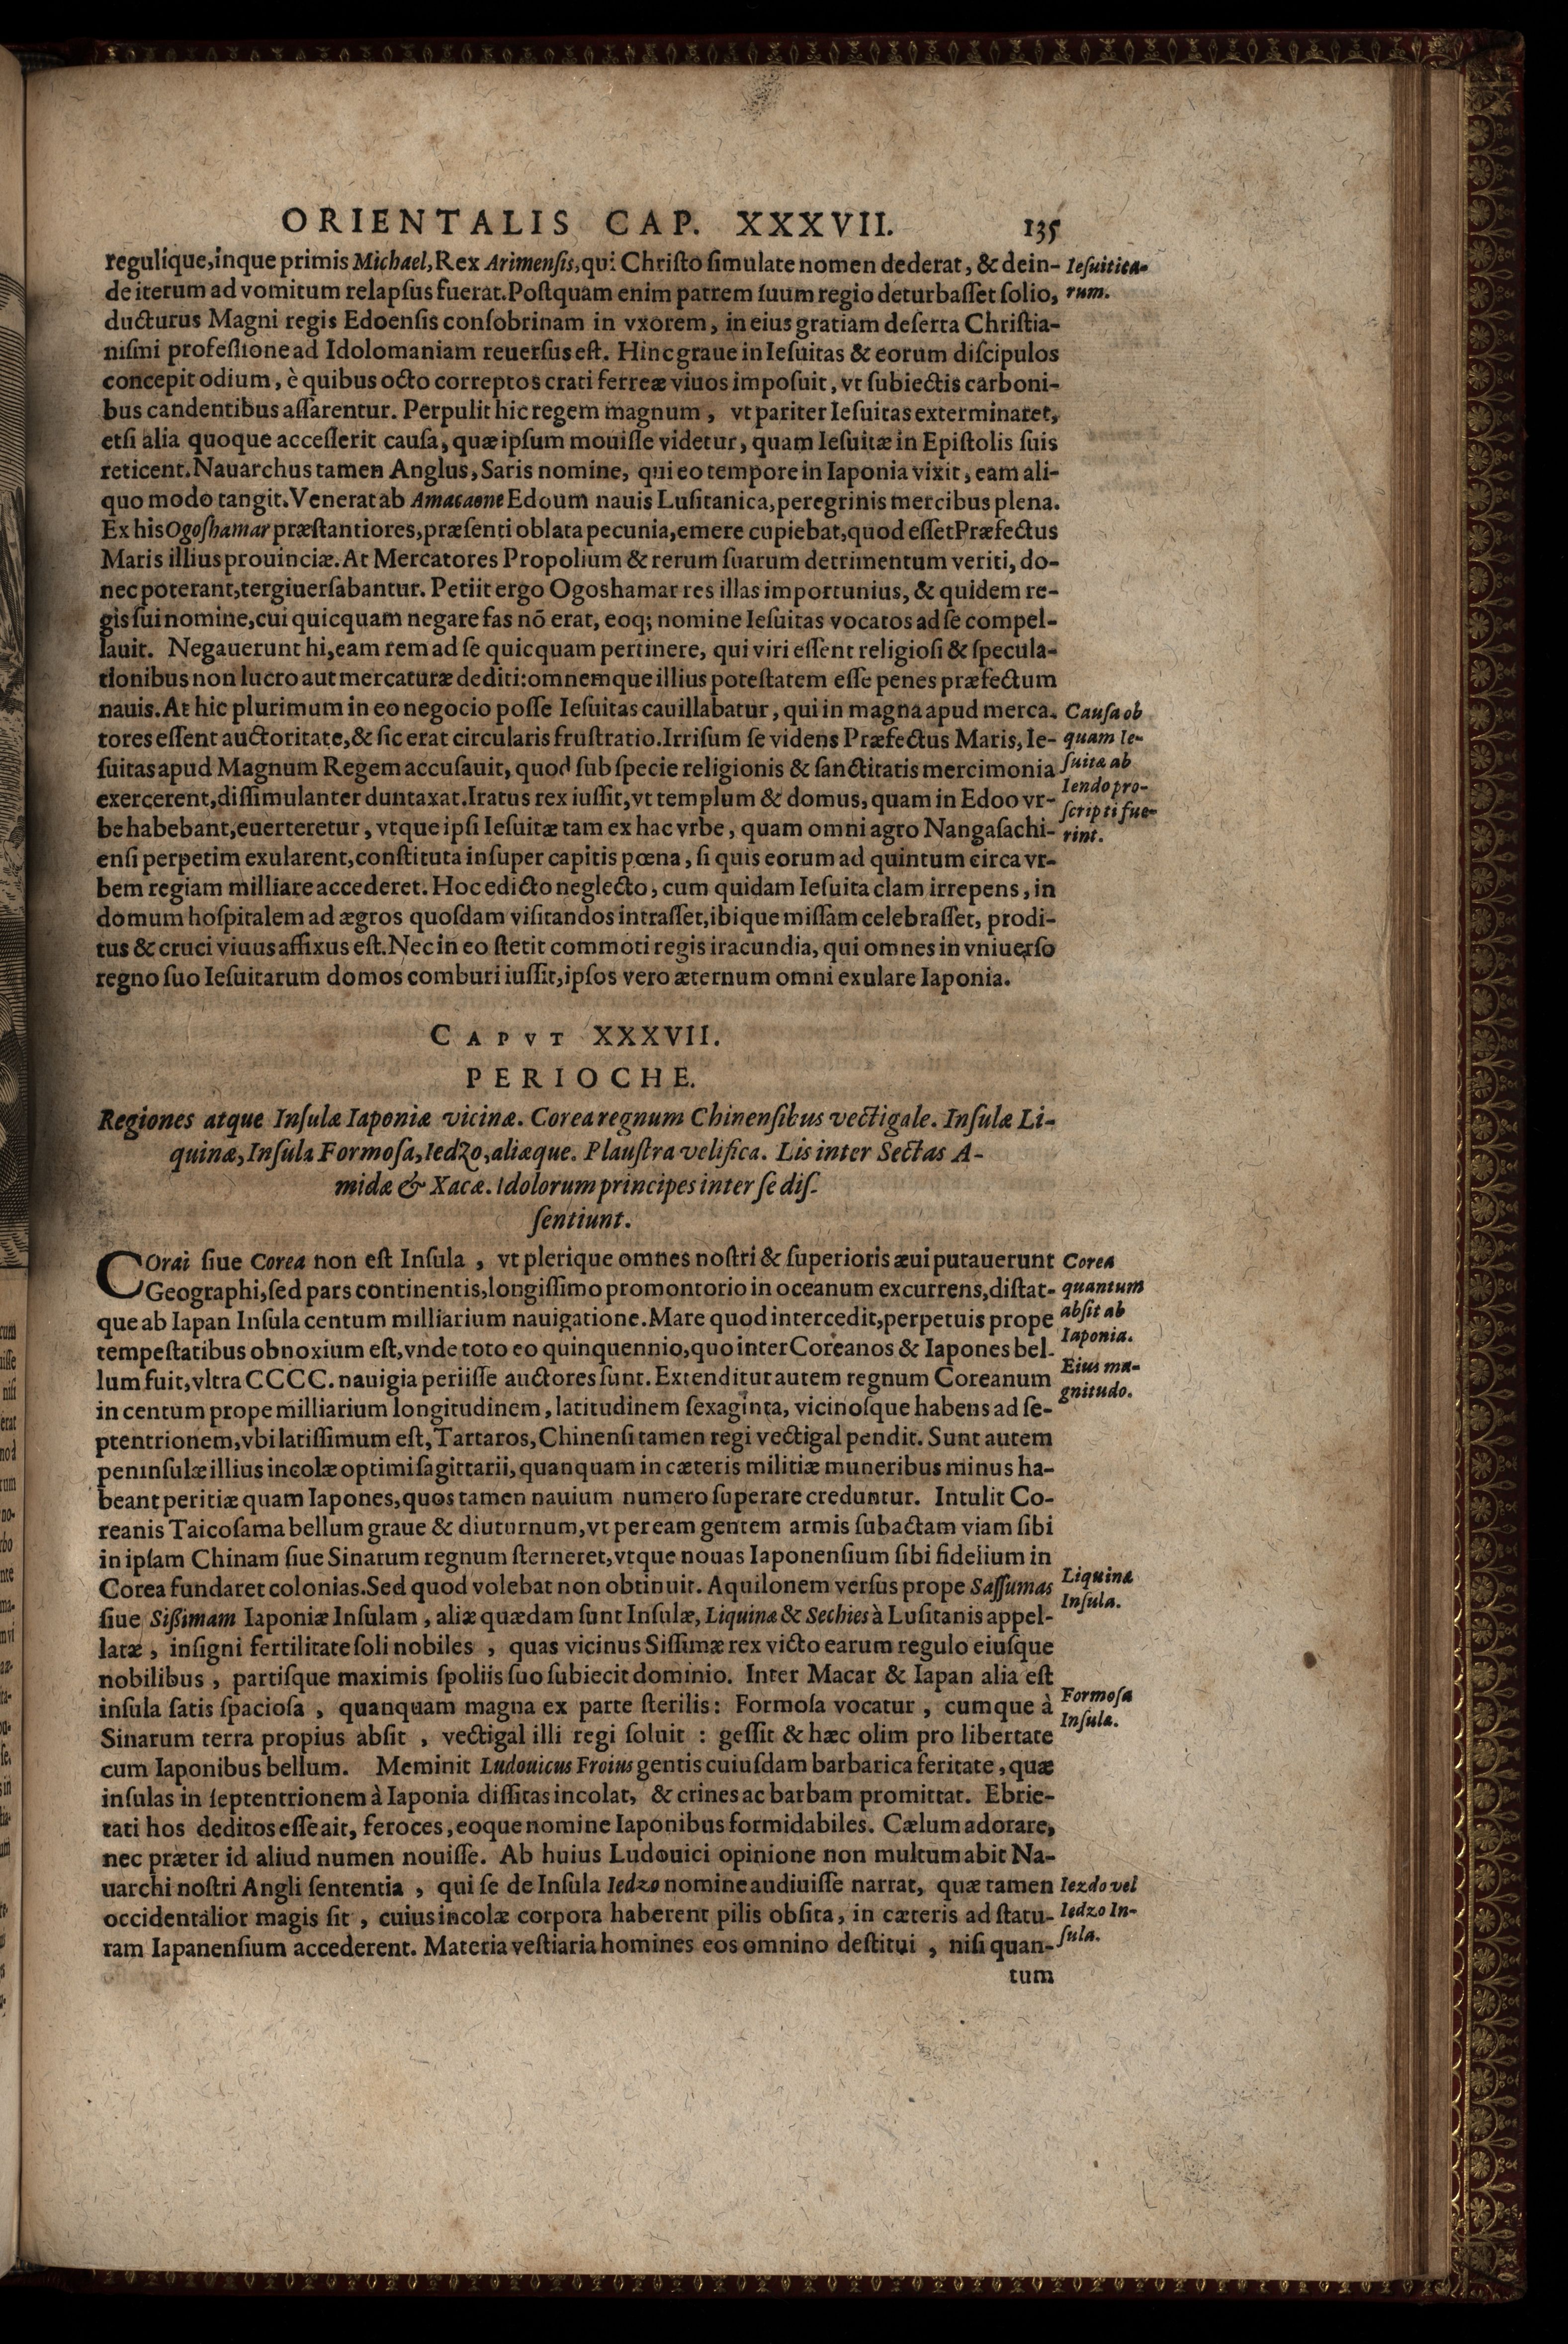 ORIENTALIS CAP. XXXVII. 135
regulique,inque primis Michael,Rex Arimenſis,qui Chriſto ſimulate nomen dederat, & dein-
de iterum ad vomitum relapſus fuerat.Poſtquam enim patrem ſuum regio deturbaſſet ſolio,
ducturus Magni regis Edoenſis conſobrinam in vxorem, in eius gratiam deſerta Chriſtia-
niſmi profeſſione ad Idolomaniam reuerſus eſt. Hinc graue in Ieſuitas & eorum diſcipulos
concepit odium, è quibus octo correptos crati ferreæ viuos impoſuit, vt ſubiectis carboni-
bus candentibus aſſarentur. Perpulit hic regem magnum, vt pariter Ieſuitas exterminaret,
etſi alia quoque acceſſerit cauſa, quæ ipſum mouiſſe videtur, quam Ieſuitæ in Epiſtolis ſuis
reticent.Nauarchus tamen Anglus, Saris nomine, qui eo tempore in Iaponia vixit, eam ali-
quo modo tangit.Venerat ab Amacaone Edoum nauis Luſitanica,peregrinis mercibus plena.
Ex his Ogoſhamar præſtantiores,præſenti oblata pecunia,emere cupiebat,quod eſſet Præfectus
Maris illius prouinciæ.At Mercatores Propolium & rerum ſuarum detrimentum veriti, do-
nec poterant,tergiuerſabantur. Petiit ergo Ogoshamar res illas importunius, & quidem re-
gis ſui nomine,cui quicquam negare fas nõ erat, eoq; nomine Ieſuitas vocatos ad ſe compel-
lauit. Negauerunt hi,eam rem ad ſe quicquam pertinere, qui viri eſſent religioſi & ſpecula-
tionibus non lucro aut mercaturæ dediti:omnemque illius poteſtatem eſſe penes præfectum
nauis.At hic plurimum in eo negocio poſſe Ieſuitas cauillabatur, qui in magna apud merca.
tores eſſent auctoritate,& ſic erat circularis fruſtratio.Irriſum ſe videns Præfectus Maris, Ie-
ſuitas apud Magnum Regem accuſauit, quod ſub ſpecie religionis & ſanctitatis mercimonia
exercerent,diſſimulanter duntaxat.Iratus rex iuſſit,vt templum & domus, quam in Edoo vr-
be habebant,euerteretur, vtque ipſi Ieſuitæ tam ex hac vrbe, quam omni agro Nangaſachi-
enſi perpetim exularent,conſtituta inſuper capitis pœna, ſi quis eorum ad quintum circa vr-
bem regiam milliare accederet. Hoc edicto neglecto, cum quidam Ieſuita clam irrepens, in
domum hoſpitalem ad ægros quoſdam viſitandos intraſſet,ibique miſſam celebraſſet, prodi-
tus & cruci viuus affixus eſt.Nec in eo ſtetit commoti regis iracundia, qui omnes in vniuerſo
regno ſuo Ieſuitarum domos comburi iuſſit,ipſos vero æternum omni exulare Iaponia.
Ieſuitica-
rum.
Cauſa ob
quam Ie-
ſuitæ ab
Iendo pro-
ſcripti fue-
rint.
CAPVT XXXVII.
PERIOCHE.
Regiones atque Inſulæ Iaponiæ vicinæ. Corea regnum Chinenſibus vectigale. Inſulæ Li-
quinæ,Inſula Formoſa,Iedzo,aliæque. Plauſtra velifica. Lis inter Sectas A-
midæ & Xacæ. Idolorum principes inter ſe diſ-
ſentiunt.
COrai ſiue Corea non eſt Inſula , vt plerique omnes noſtri & ſuperioris æui putauerunt
Geographi,ſed pars continentis,longiſſimo promontorio in oceanum excurrens,diſtat-
que ab Iapan Inſula centum milliarium nauigatione.Mare quod intercedit,perpetuis prope
tempeſtatibus obnoxium eſt,vnde toto eo quinquennio,quo inter Coreanos & Iapones bel-
lum fuit,vltra CCCC. nauigia periiſſe auctores ſunt.Extenditur autem regnum Coreanum
in centum prope milliarium longitudinem, latitudinem ſexaginta, vicinoſque habens ad ſe-
ptentrionem,vbi latiſſimum eſt, Tartaros, Chinenſi tamen regi vectigal pendit. Sunt autem
peninſulæ illius incolæ optimi ſagittarii, quanquam in cæteris militiæ muneribus minus ha-
beant peritiæ quam Iapones,quos tamen nauium numero ſuperare creduntur. Intulit Co-
reanis Taicoſama bellum graue & diuturnum,vt per eam gentem armis ſubactam viam ſibi
in ipſam Chinam ſiue Sinarum regnum ſterneret,vtque nouas Iaponenſium ſibi fidelium in
Corea fundaret colonias.Sed quod volebat non obtinuit. Aquilonem verſus prope Saſſumas
ſiue Sißimam Iaponiæ Inſulam , aliæ quædam ſunt Inſulæ, Liquinæ & Sechies à Luſitanis appel-
latæ , inſigni fertilitate ſoli nobiles , quas vicinus Siſſimæ rex victo earum regulo eiuſque
nobilibus , partiſque maximis ſpoliis ſuo ſubiecit dominio. Inter Macar & Iapan alia eſt
inſula ſatis ſpacioſa , quanquam magna ex parte ſterilis: Formoſa vocatur , cumque à
Sinarum terra propius abſit , vectigal illi regi ſoluit : geſſit & hæc olim pro libertate
cum Iaponibus bellum. Meminit Ludouicus Froius gentis cuiuſdam barbarica feritate, quæ
inſulas in ſeptentrionem à Iaponia diſſitas incolat, & crines ac barbam promittat. Ebrie-
tati hos deditos eſſe ait, feroces, eoque nomine Iaponibus formidabiles. Cælum adorare,
nec præter id aliud numen nouiſſe. Ab huius Ludouici opinione non multum abit Na-
uarchi noſtri Angli ſententia , qui ſe de Inſula Iedzo nomine audiuiſſe narrat, quæ tamen
occidentalior magis ſit , cuius incolæ corpora haberent pilis obſita, in cæteris ad ſtatu-
ram Iapanenſium accederent. Materia veſtiaria homines eos omnino deſtitui , niſi quan-
tum
Corea
quantum
abſit ab
Iaponia.
Eius ma-
gnitudo.
Liquinæ
Inſula.
Formoſa
Inſula.
Iezdo vel
Iedzo In-
ſula.